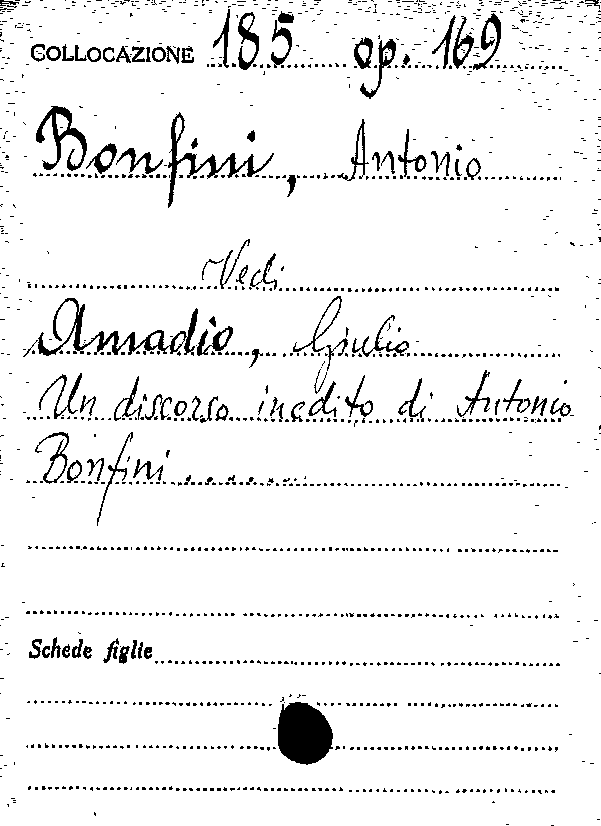 COLLOCAZIONE 185 op. 169
Bonfini, Antonio
Vedi
Amadio, Giulio
Un discorso inedito di Antonio
Bonfini .......
Schede figlie